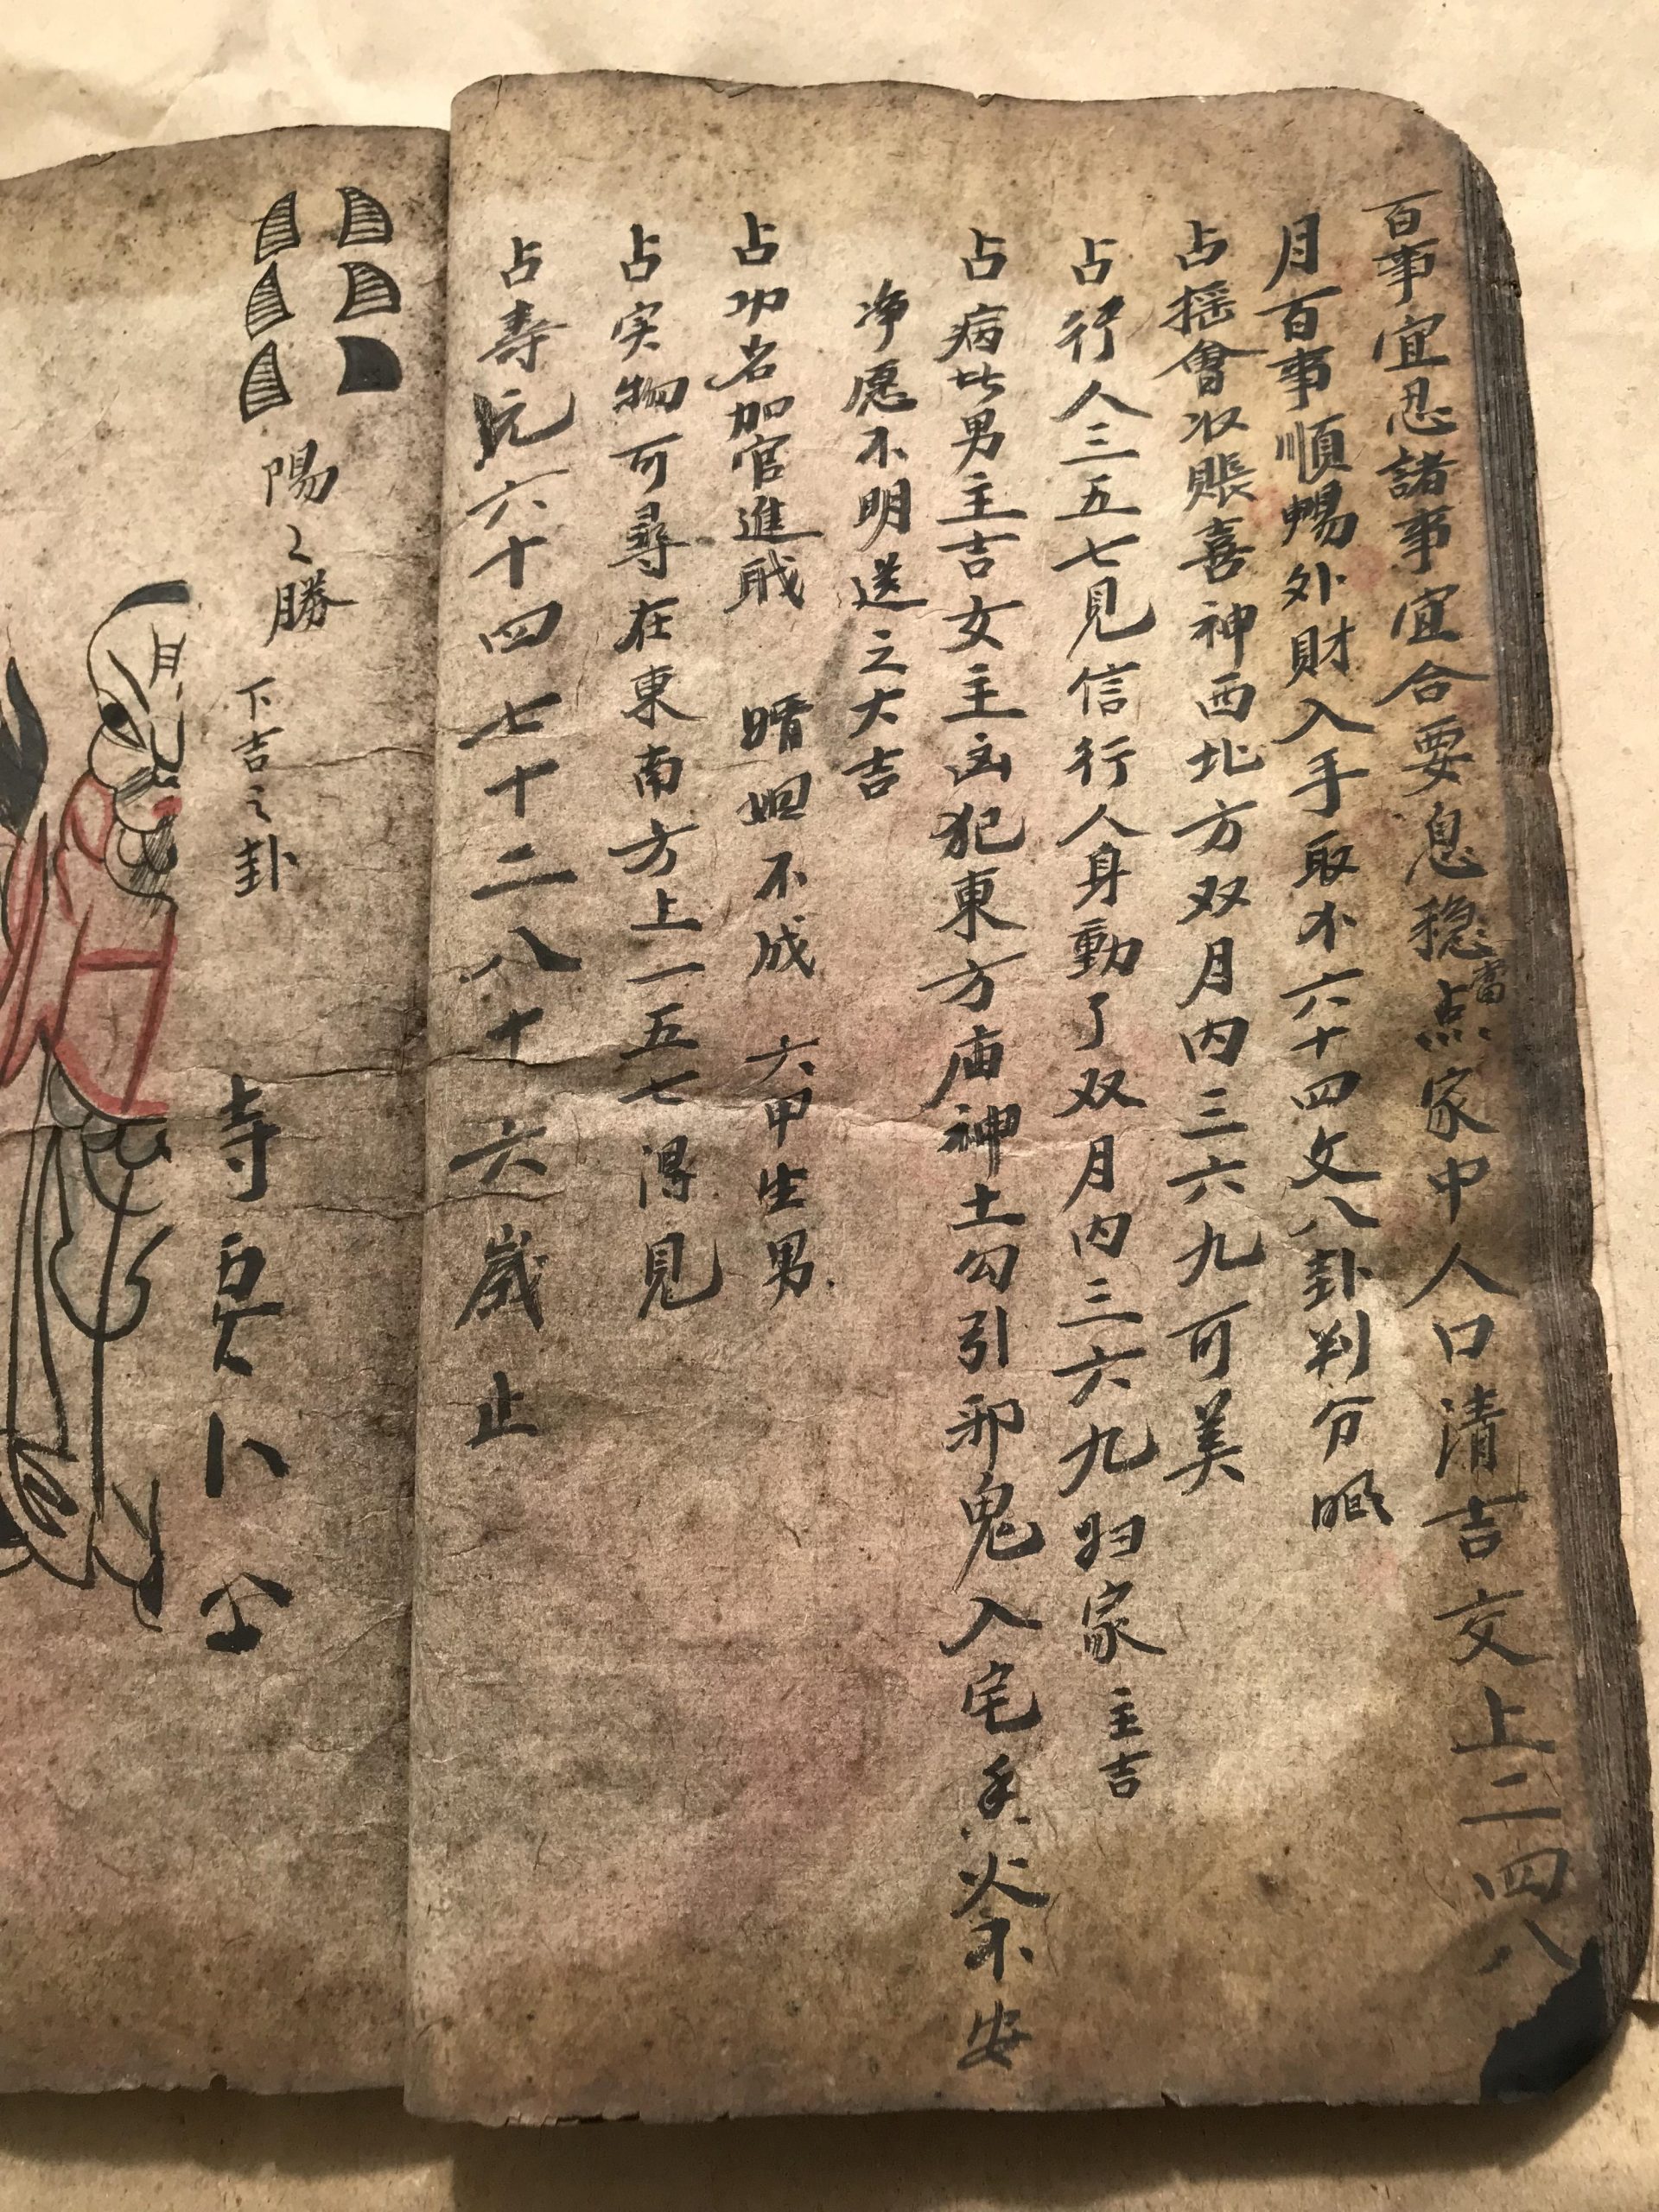 百事宜忍諸事宜合要息稳當点家中人口清吉交上二四八
月百事順暢外財入手取不六十四文八卦判分明
占摇會收賬喜神西北方双月内三六九可美
占行人三五七見信行人身動了双月内三六九归家主吉
占病此男主吉女主凶犯東方庙神土勾引邪鬼入宅香火不安
净愿不明送之大吉
占功名加官進职 婚姻不成 六甲生男
占失物可尋在東南方上一五七得見
占壽元六十四七十二八十六歲止
陽〻勝
下吉之卦
月
寺